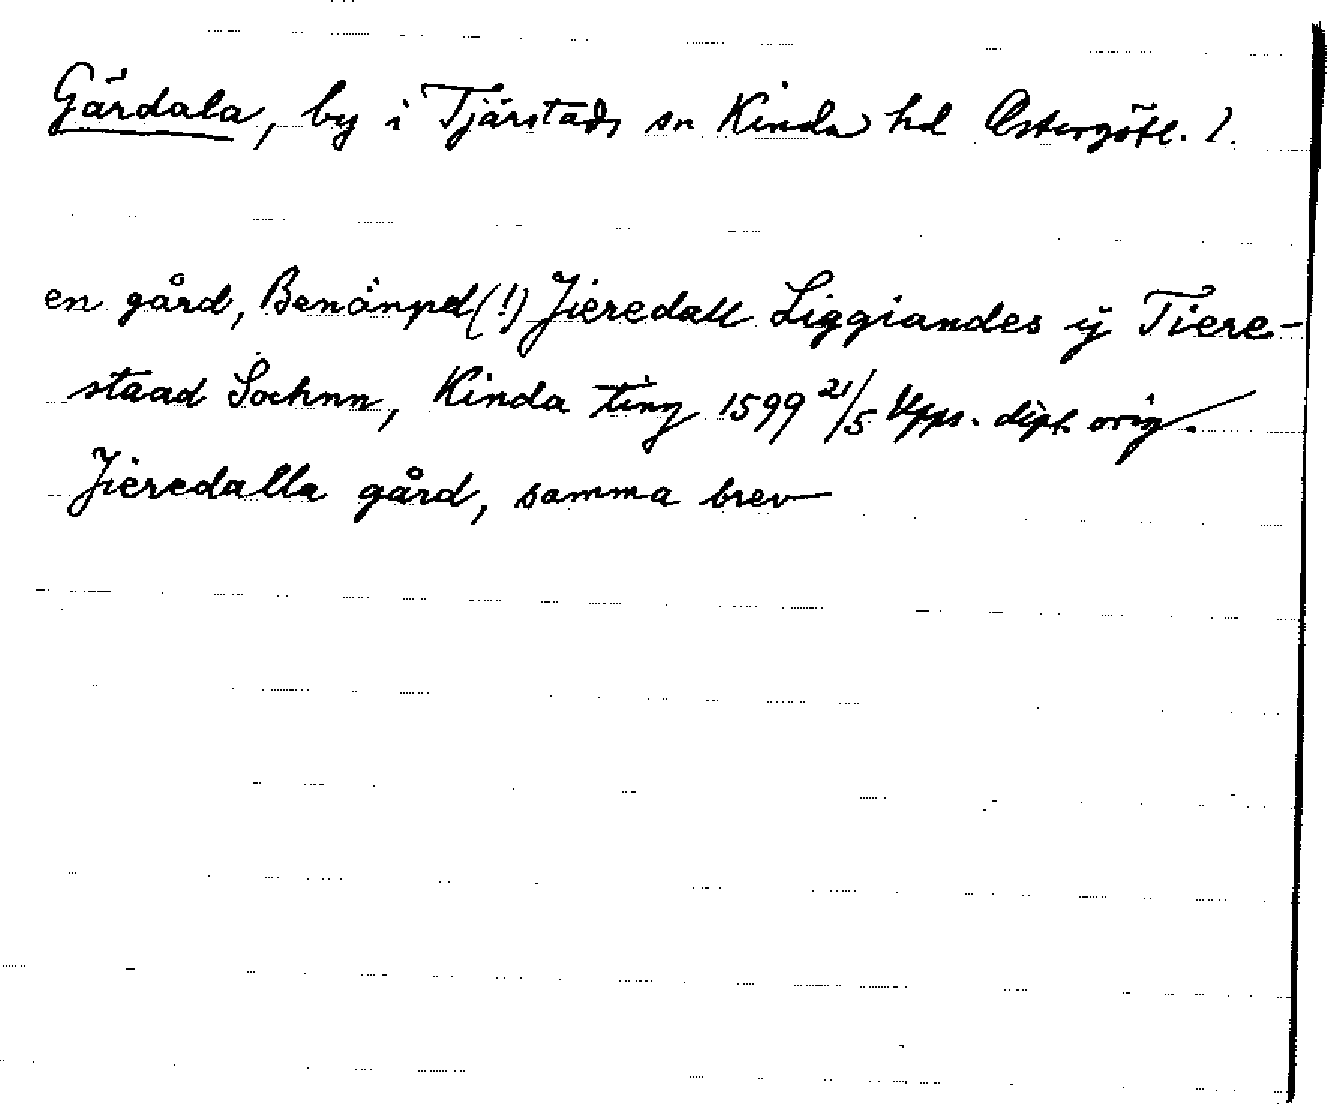 Gärdala, by i Tjärstads sn Kinda hd Östergötl. l.
en gård, Benänpd(!) Jieredall Liggiandes ÿ Tiere-
staad Sochnn, Kinda ting 1599 21/5 Upps. dipl. orig.
Jieredalla gård, samma brev